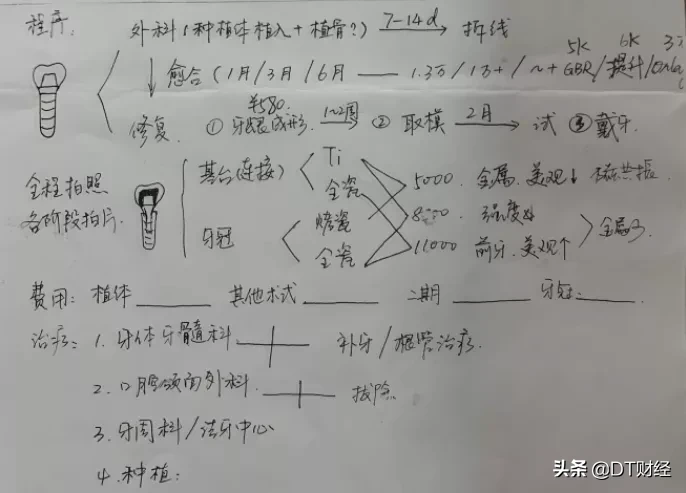 程序: 外科(种植体植入+植骨?) 7-14d 拆线
愈合(1月/3月/6月 — 1.3万/1万+/~+GBR/提升/Onlay
5K 6K 3万
半580.
修复. ① 牙龈成形. 1~2周 ② 取模 2月 试 ③ 戴牙.
全程拍照
各阶段拍片.
基台(连接) Ti 全瓷
牙冠 烤瓷 全瓷
5000. 金属. 美观↓ 核共振.
8000. 强度
11000 前牙. 美观个
费用: 植体 其他术式 二期 牙冠:
治疗: 1. 牙体牙髓科. 补牙/根管治疗.
2. 口腔颌面外科. 拔除
3. 牙周科/洁牙中心
4. 种植:
头条 @DT财经